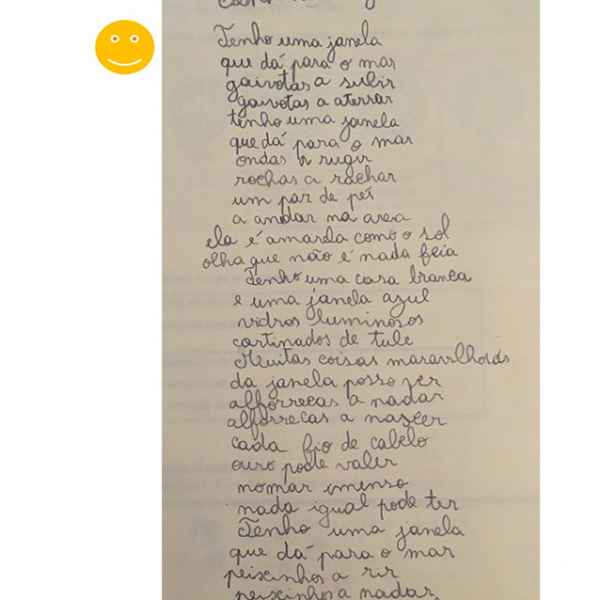 Tenho uma janela
que dá para o mar
gaivotas a subir
gaivotas a aterrar
tenho uma janela
que dá para o mar
ondas a rugir
rochas a rachar
um par de pés
a andar na areia
ela é amarela como o sol
olha que não é nada feia
Tenho uma casa branca
e uma janela azul
vidros luminosos
cortinados de tule
Muitas coisas maravilhosas
da janela posso ver
alforrecas a nadar
alforrecas a nascer
cada fio de cabelo
ouro pode valer
no mar imenso
nada igual pode ter
Tenho uma janela
que dá para o mar
peixinhos a rir
peixinhos a nadar